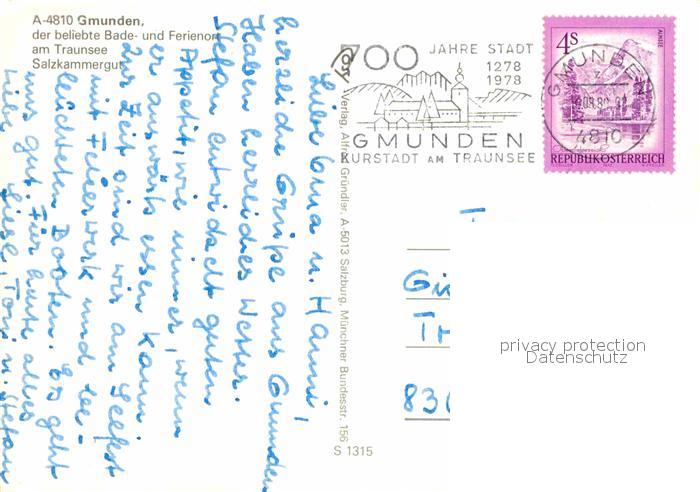 A-4810 Gmunden,
der beliebte Bade- und Ferienort
am Traunsee
Salzkammergut
700 JAHRE STADT
1278
1978
GMUNDEN
KURSTADT AM TRAUNSEE
4S
ALMSEE
GMUNDEN
4810
REPUBLIK ÖSTERREICH
Liebe Oma u. Hanni!
herzliche Grüße aus Gmunden
Haben herrliches Wetter.
Stefan entwickelt guten
Appetit, wie immer, wenn
er auswärts essen kann.
Zur Zeit sind wir am Seefest
mit Feuerwerk und be-
leuchteten Booten. Es geht
uns gut. Für heute alles
Liebe Liesl, Toni u. Stefan
Verlag, Alfred Gründler, A-5013 Salzburg, Münchner Bundesstr. 156
S 1315
privacy protection
Datenschutz